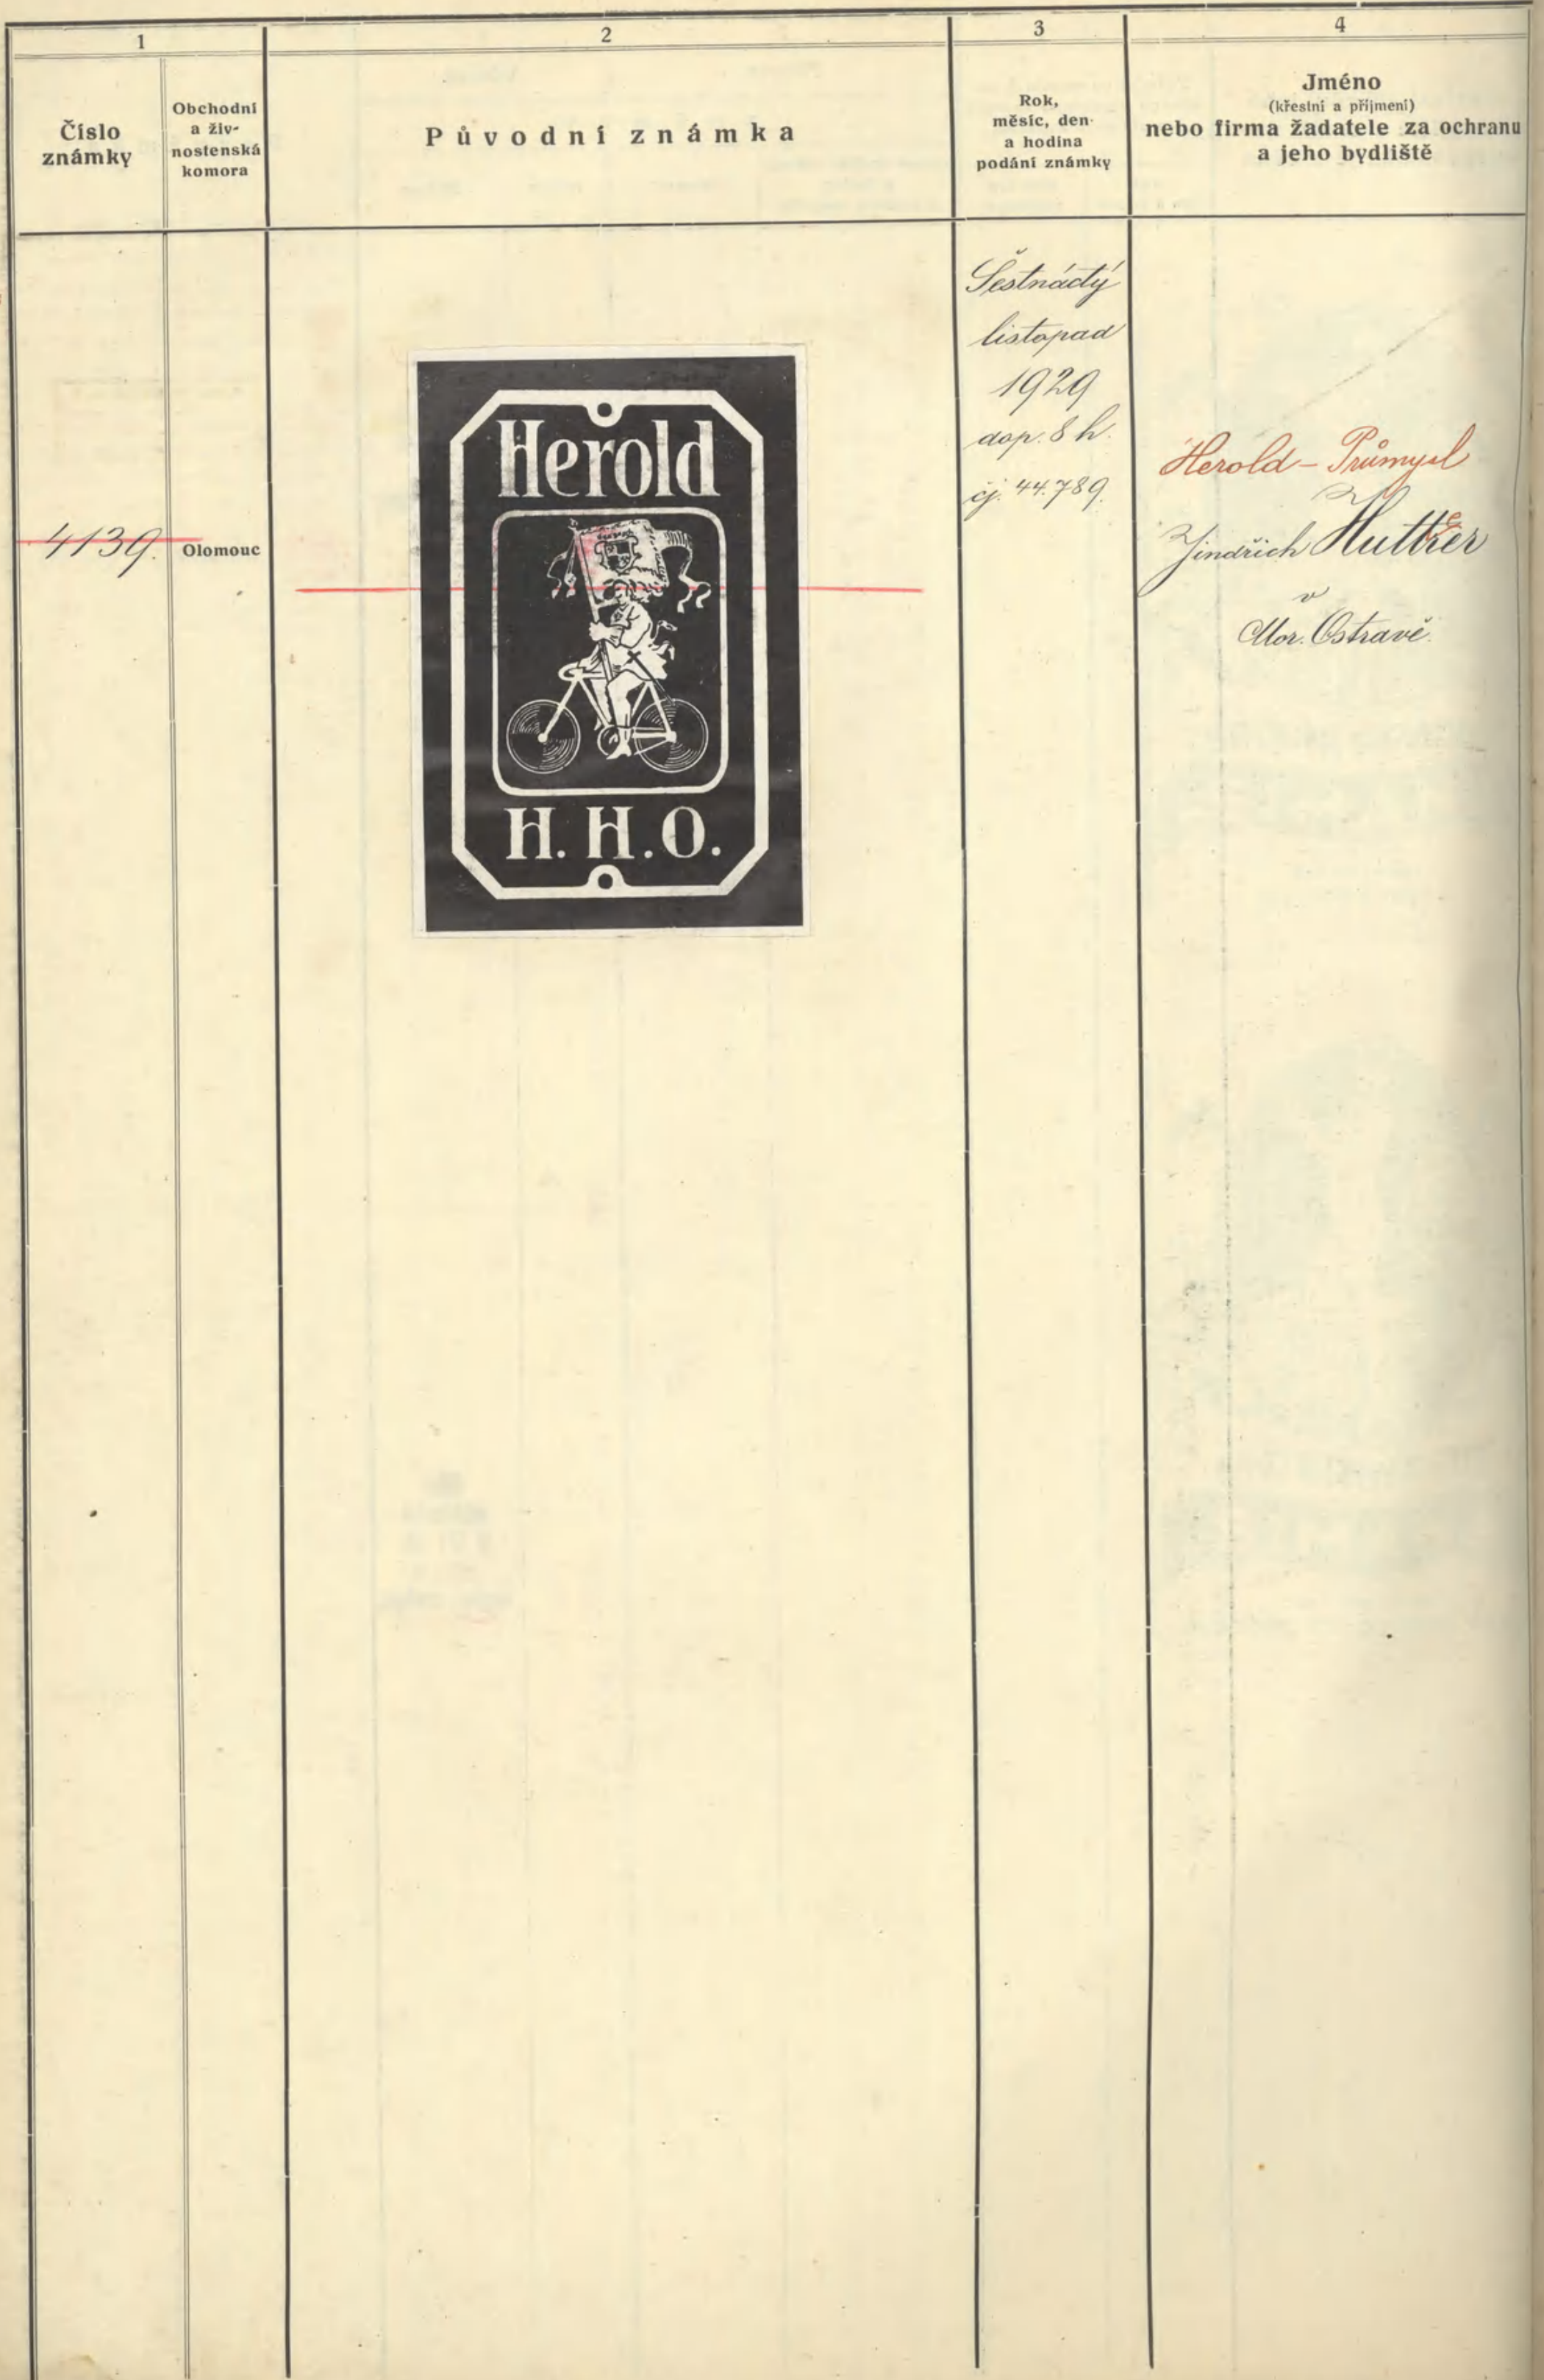 1
2
3
4
Číslo
známky
Obchodní
a živ-
nostenská
komora
Původní známka
Rok,
měsíc, den
a hodina
podání známky
Jméno
(křestní a příjmení)
nebo firma žadatele za ochranu
a jeho bydliště
4139.
Olomouc
Herold
H. H. O.
Šestnáctý
listopad
1929
dop. 8 h.
čj. 44.789.
Herold - Průmysl
Jindřich
v
Mor. Ostravě.